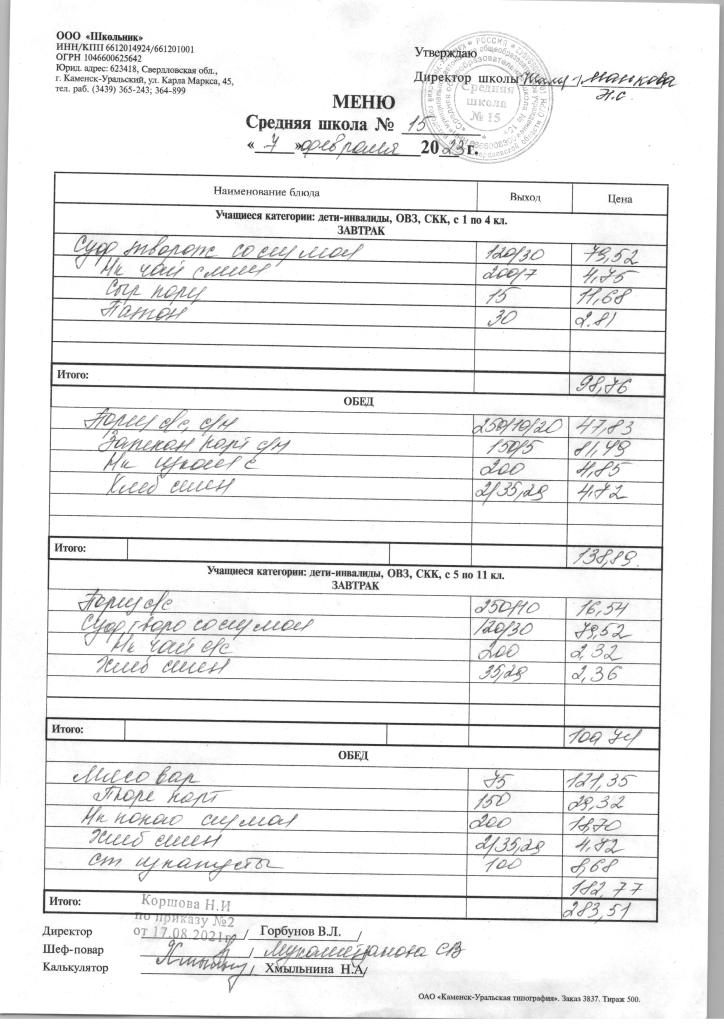 ООО «Школьник»
ИНН/КПП 6612014924/661201001
ОГРН 1046600625642
Юрид. адрес: 623418, Свердловская обл.,
г. Каменск-Уральский, ул. Карла Маркса, 45,
тел. раб. (3439) 365-243; 364-899
Утверждаю
Директор школы Манкова
Н.С.
Средняя
школа
№ 15
МЕНЮ
Средняя школа № 15
« 7 » февраля 2023 г.
Наименование блюда Выход Цена
Учащиеся категории: дети-инвалиды, ОВЗ, СКК, с 1 по 4 кл.
ЗАВТРАК
Суф творож со сг мол 120/30 79,52
Нк чай слим 200/7 4,75
Сыр порц 15 11,68
Батон 30 2.81
Итого: 98,76
ОБЕД
Борщ с/с, с/м 250/10/20 47,83
Запекан карт с/м 150/5 81,49
Нк 200 4,85
Хлеб смеш 2/35,29 4.72
Итого: 138,89.
Учащиеся категории: дети-инвалиды, ОВЗ, СКК, с 5 по 11 кл.
ЗАВТРАК
Борщ с/с 250/10 16,54
Суф творо со сг мол 120/30 79,52
Нк чай с/с 200 2,32
Хлеб смеш 35,29 2,36
Итого: 100 74
ОБЕД
Мясо вар 75 121,35
Пюре карт 150 29,32
Нк какао сг мол 200 18,70
Хлеб смеш 2/35,29 4.72
ст цкапусты 100 8,68
182,77
Итого: 283,51
Коршова Н.И
по приказу №2
от 17.08.2021г
Директор / Горбунов В.Л. /
Шеф-повар / СВ
Калькулятор / Хмыльнина Н.А/
ОАО «Каменск-Уральская типография». Заказ 3837. Тираж 500.